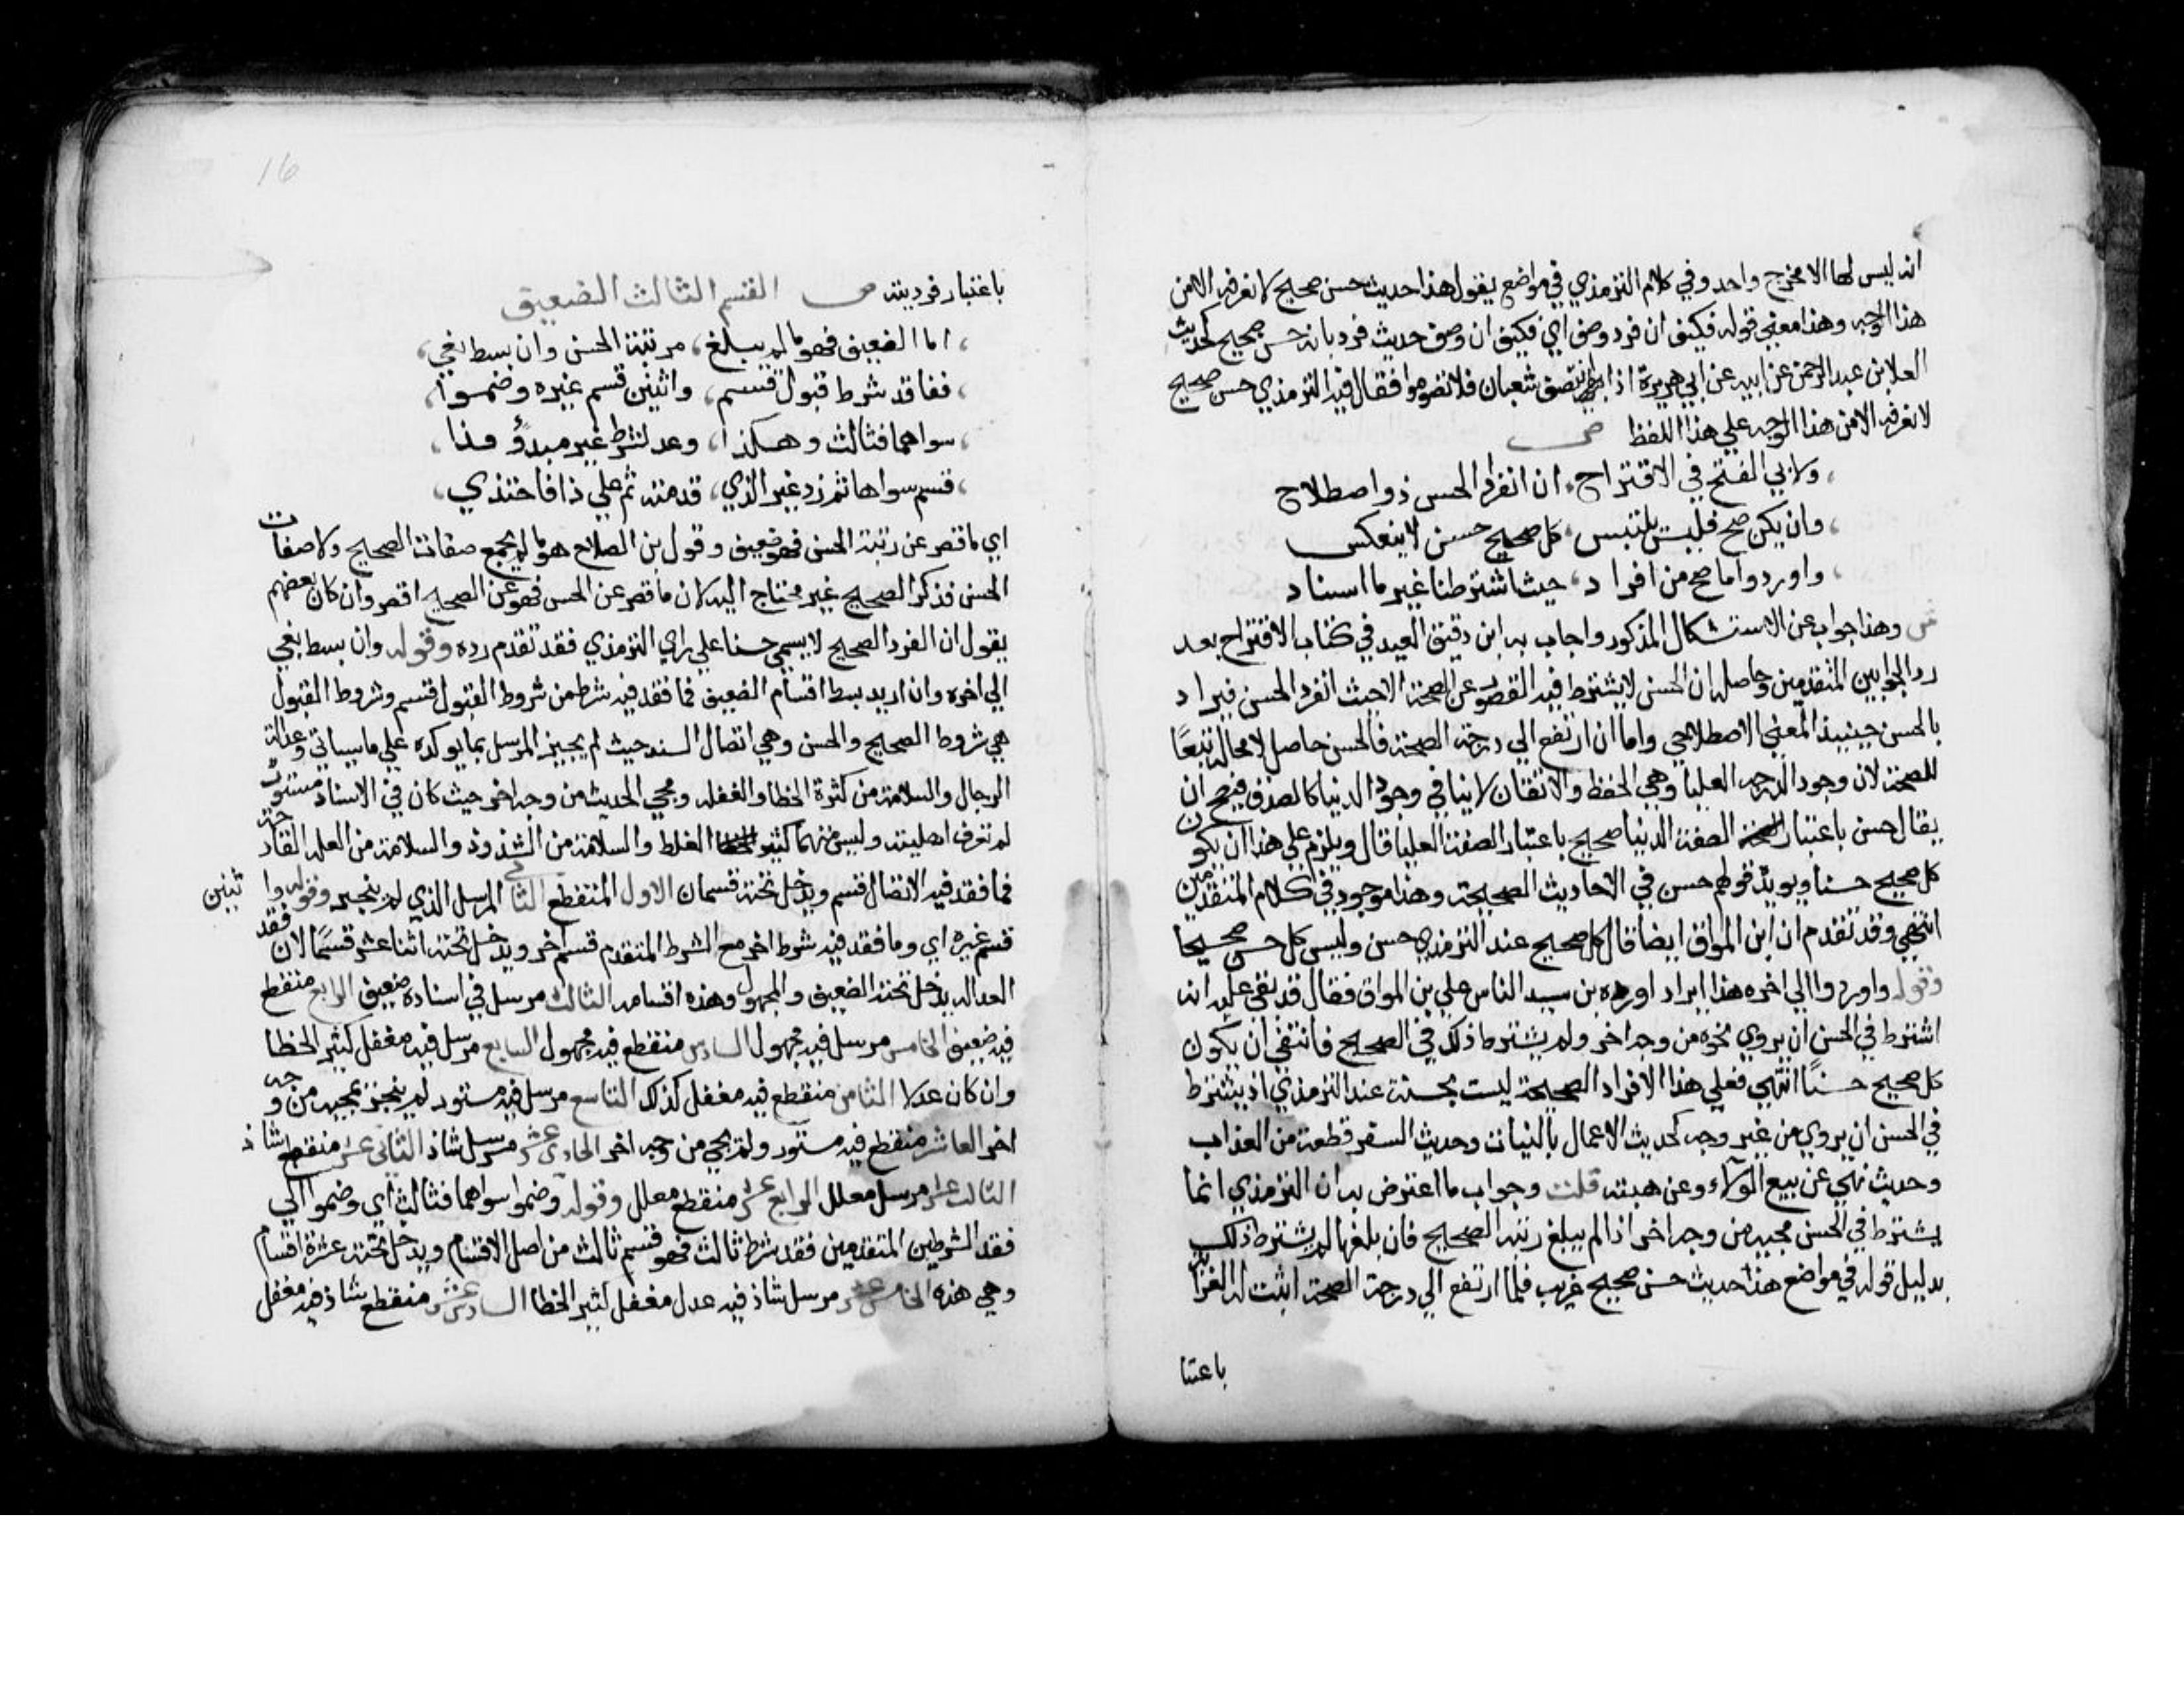 انه ليس لها الا مخرج واحد وفي كلام الترمذي في مواضع يقول هذا حديث حسن صحيح لا نعرفه الا من
هذا الوجه وهذا معني قوله فكيف ان فرد وصف اي فكيف ان وصف حديث فرد بانه حسن صحيح كحديث
العلا بن عبد الرحمن عن ابيه عن ابي هريرة اذا انتصف شعبان فلا تصوموا فقال فيه الترمذي حسن صحيح
لا نعرفه الا من هذا الوجه علي هذا اللفظ ص
ولابي الفتح في الاقتراح ، ان انفراد الحسن ذو اصطلاح
وان يكن صح فليس يلتبس ، كل صحيح حسن لا ينعكس
واوردوا ما صح من افراد ، حيث اشترطنا غير ما اسناد
ش وهذا جواب عن الاستشكال المذكور واجاب به ابن دقيق العيد في كتاب الاقتراح بعد
رد الجوابين المتقدمين وحاصله ان الحسن لا يشترط فيه القصور عن الصحة الا حيث انفرد الحسن فيراد
بالحسن حينيذ المعني الاصطلاحي واما ان ارتفع الي درجة الصحة فالحسن حاصل لا محالة تبعًا
للصحة لان وجود الدرجه العليا وهي الحفظ والاتقان لا ينافي وجود الدنيا كالصدق فيصح ان
يقال حسن باعتبار الصفة الدنيا صحيح باعتبار الصفة العليا قال ويلزم علي هذا ان يكون
كل صحيح حسنا ويويد قولهم حسن في الاحاديث الصحيحة وهذا موجود في كلام المتقدمين
انتهي وقد تقدم ان ابن المواق ايضا قال كل صحيح عند الترمذي حسن وليس كل حسن صحيحا
وقوله واوردوا الي اخره هذا ايراد اورده بن سيد الناس علي بن المواق فقال قد بقي عليه انه
اشترط في الحسن ان يروي نحوه من وجه اخر ولم يشترط ذلك في الصحيح فانتفي ان يكون
كل صحيح حسنًا انتهي فعلي هذا الافراد الصحيحة ليست بحسنة عند الترمذي اذ يشترط
في الحسن ان يروي من غير وجه كحديث الاعمال بالنيات وحديث السفر قطعة من العذاب
وحديث نهي عن بيع الولاء وعن هبته قلت وجواب ما اعترض به ان الترمذي انما
يشترط في الحسن مجيه من وجه اخر اذا لم يبلغ رتبة الصحيح فان بلغها لم يشترط ذلك
بدليل قوله في مواضع هذا حديث حسن صحيح غريب فلما ارتفع الي درجة الصحة اثبت له الغرابة
باعتبا
16
باعتبار فرديته ص القسم الثالث الضعيف
، اما الضعيف فهو ما لم يبلغ ، مرتبة الحسن وان بسط بغي ،
، ففاقد شرط قبول قسم ، واثنين قسم غيره وضموا ،
، سواهما فثالث وهكذا ، وعد لشرط غير مبدوٍ فذا ،
، قسم سواها ثم زد غير الذي ، قدمته ثم علي ذا فاحتذي ،
اي ما قصر عن رتبة الحسن فهو ضعيف وقول بن الصلاح هو ما لم يجمع صفات الصحيح ولا صفات
الحسن فذكر الصحيح غير محتاج اليه لان ما قصر عن الحسن فهو عن الصحيح اقصر وان كان بعضهم
يقول ان الفرد الصحيح لا يسمي حسنا علي راي الترمذي فقد تقدم رده وقوله وان بسط بغي
الي اخره وان اريد بسط اقسام الضعيف فما فقد فيه شرط من شروط القبول قسم وشروط القبول
هي شروط الصحيح والحسن وهي اتصال السند حيث لم يجبر المرسل بما يوكده علي ما سياتي وعدالة
الرجال والسلامة من كثرة الخطا والغفله ومجي الحديث من وجه اخر حيث كان في الاسناد مستور
لم تعرف اهليته وليس متهما كثير الغلط والسلامة من الشذوذ والسلامة من العله القادحة
فما فقد فيه الاتصال قسم ويدخل تحته قسمان الاول المنقطع الثاني المرسل الذي لم ينجبر وقوله واثنين
قسم غيره اي وما فقد فيه شرط اخر مع الشرط المتقدم قسم اخر ويدخل تحته اثنا عشر قسمًا لان فقد
العداله يدخل تحته الضعيف والمجهول وهذه اقسامه الثالث مرسل في اسناده ضعيف الرابع منقطع
فيه ضعيف الخامس مرسل فيه مجهول السادس منقطع فيه مجهول السابع مرسل فيه مغفل كثير الخطا
وان كان عدلا الثامن منقطع فيه مغفل كذلك التاسع مرسل فيه مستور لم ينجبر بمجيه من وجه
اخر العاشر منقطع فيه مستور ولم يجي من وجه اخر الحادي عشر مرسل شاذ الثاني عشر منقطع شاذ
الثالث عشر مرسل معلل الرابع عشر منقطع معلل وقوله وضموا سواهما فثالث اي وضموا الي
فقد الشرطين المتقدمين فقد شرط ثالث فهو قسم ثالث من اصل الاقسام ويدخل تحته عشرة اقسام
وهي هذه الخامس عشر مرسل شاذ فيه عدل مغفل كثير الخطا السادس عشر منقطع شاذ فيه مغفل